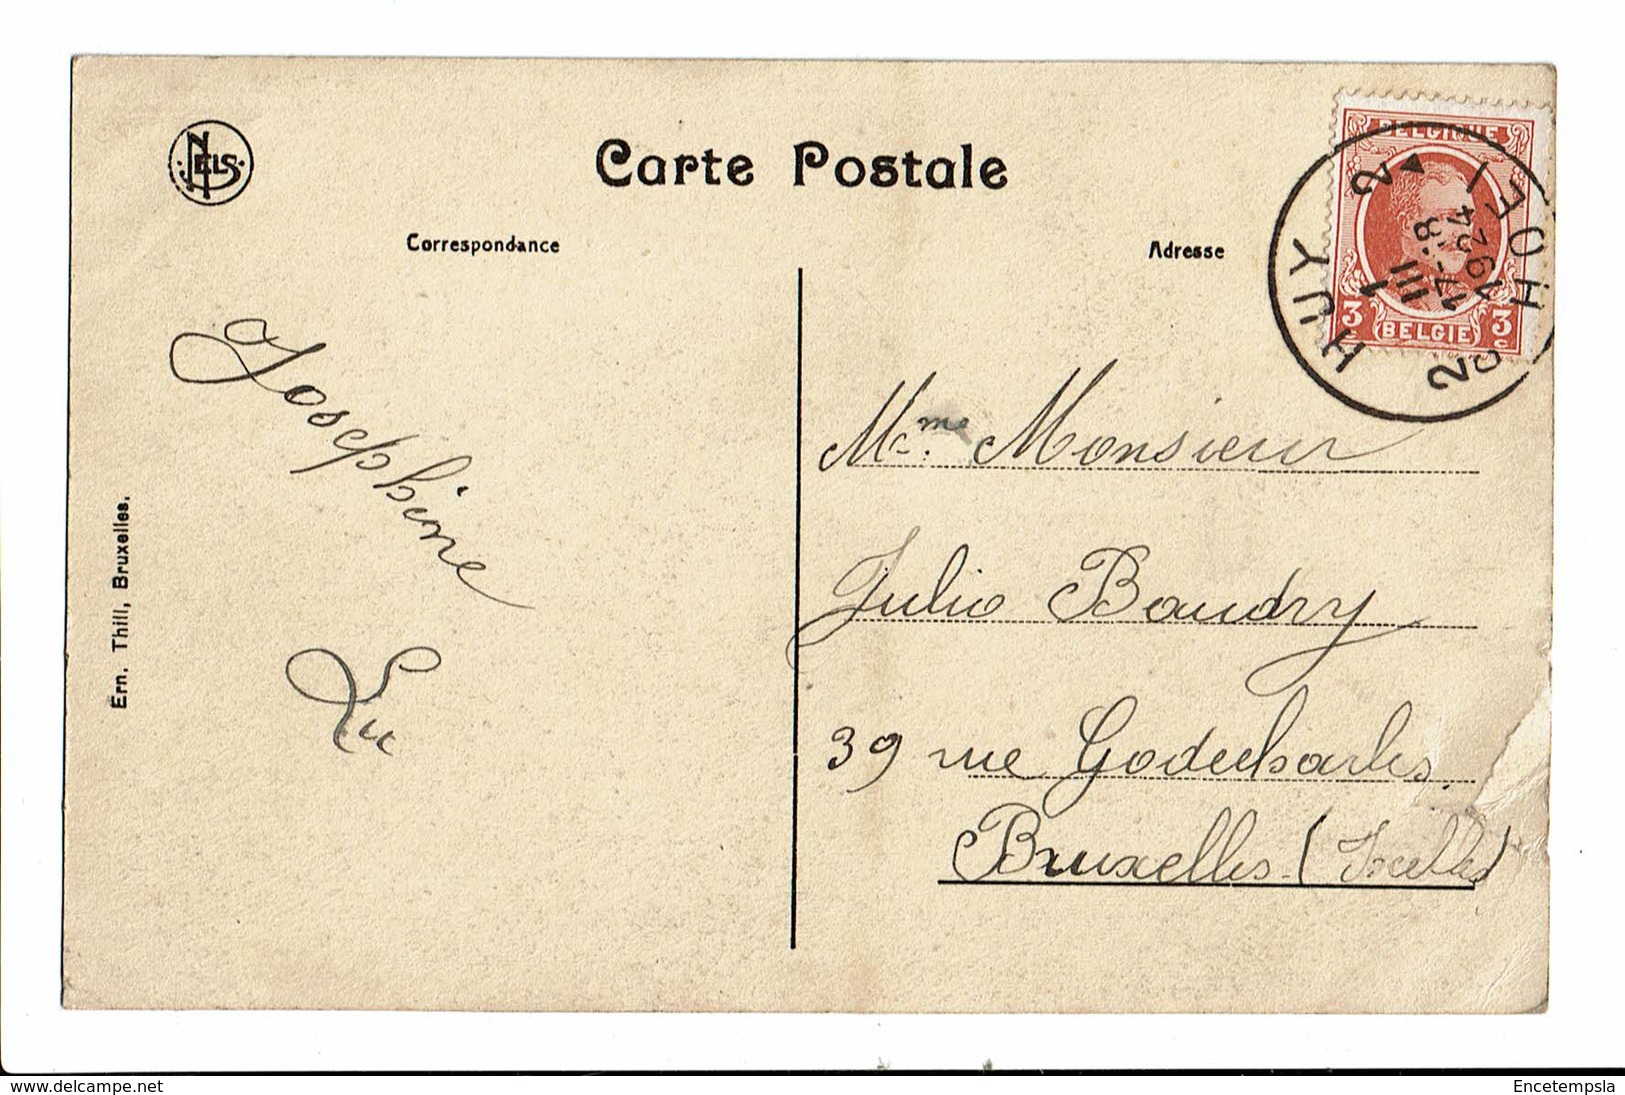 NELS
Carte Postale
Correspondance
Adresse
BELGIQUE
3 BELGIE 3
HUY 2
1
III
17-18
1924
2 HOEI
Josephine
Mme. Monsieur
Julio Baudry
39 rue Godecharles
Bruxelles (Ixelles)
Ern. Thill, Bruxelles.
delcampe.net
Encetempsla